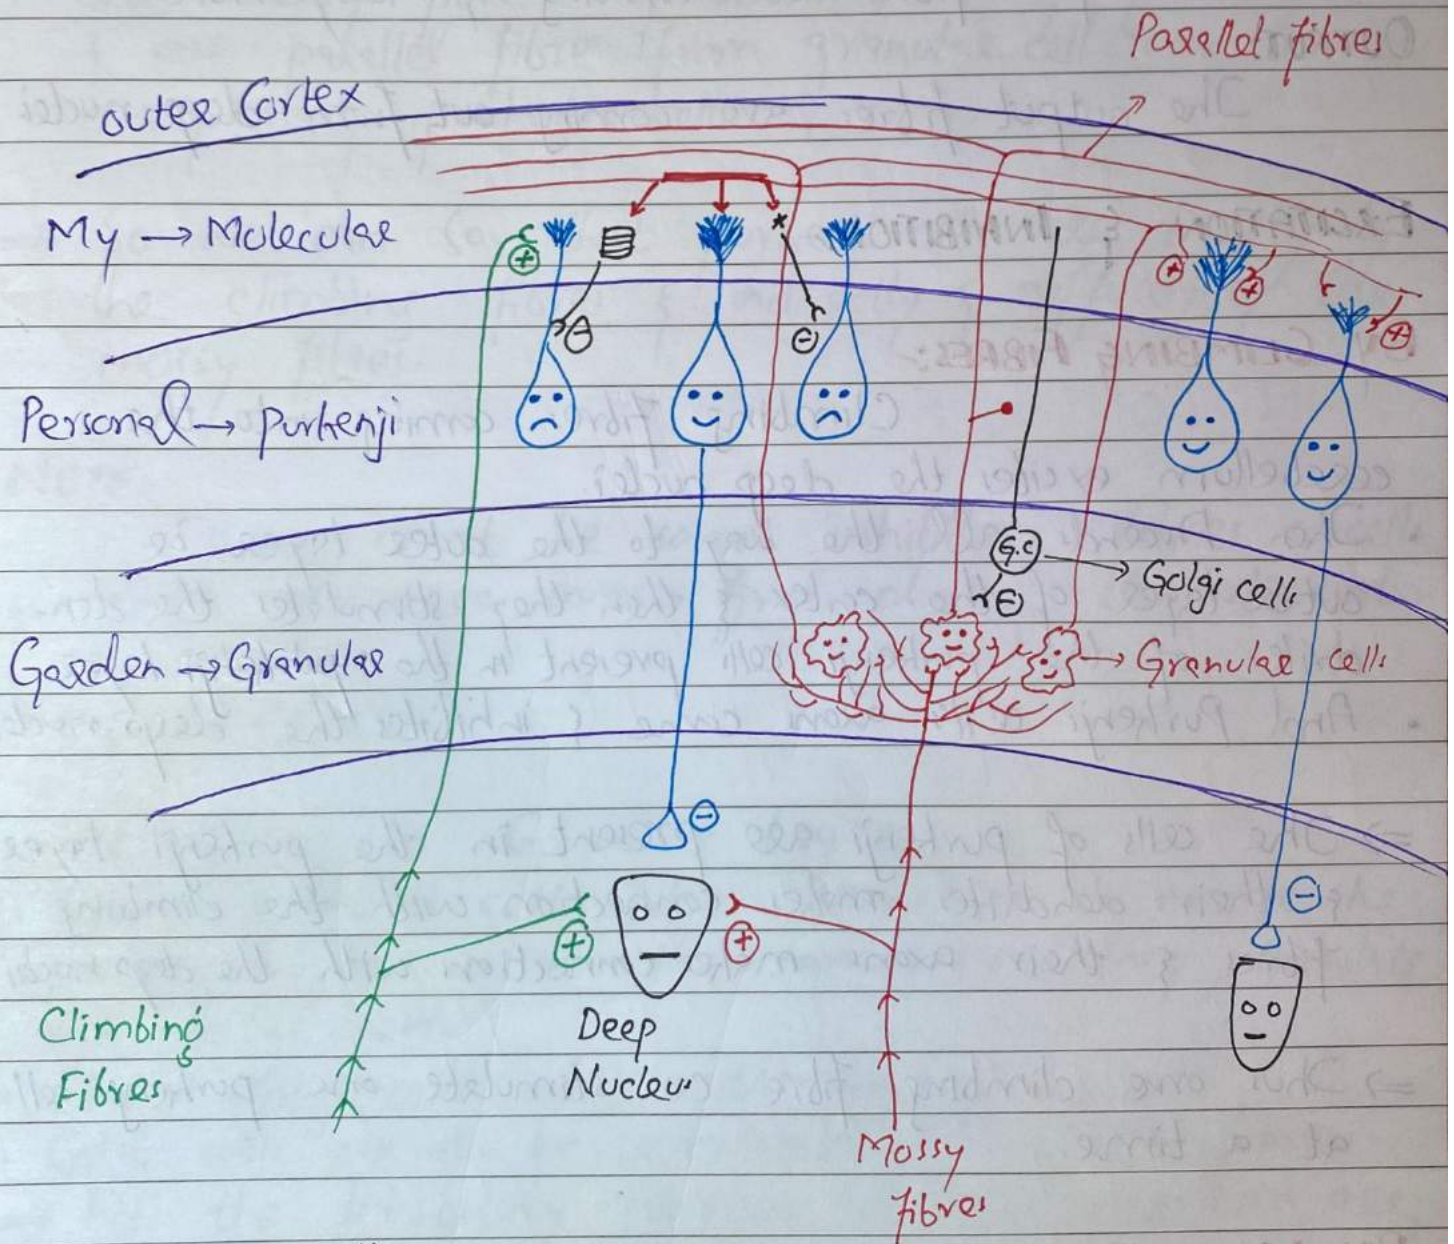 Parallel fibres
outer Cortex
My → Molecular
Personal → Purkenji
G.C
Golgi cells
Garden → Granular
Granular cells
Climbing
Fibres
Deep
Nucleus
Mossy
fibres